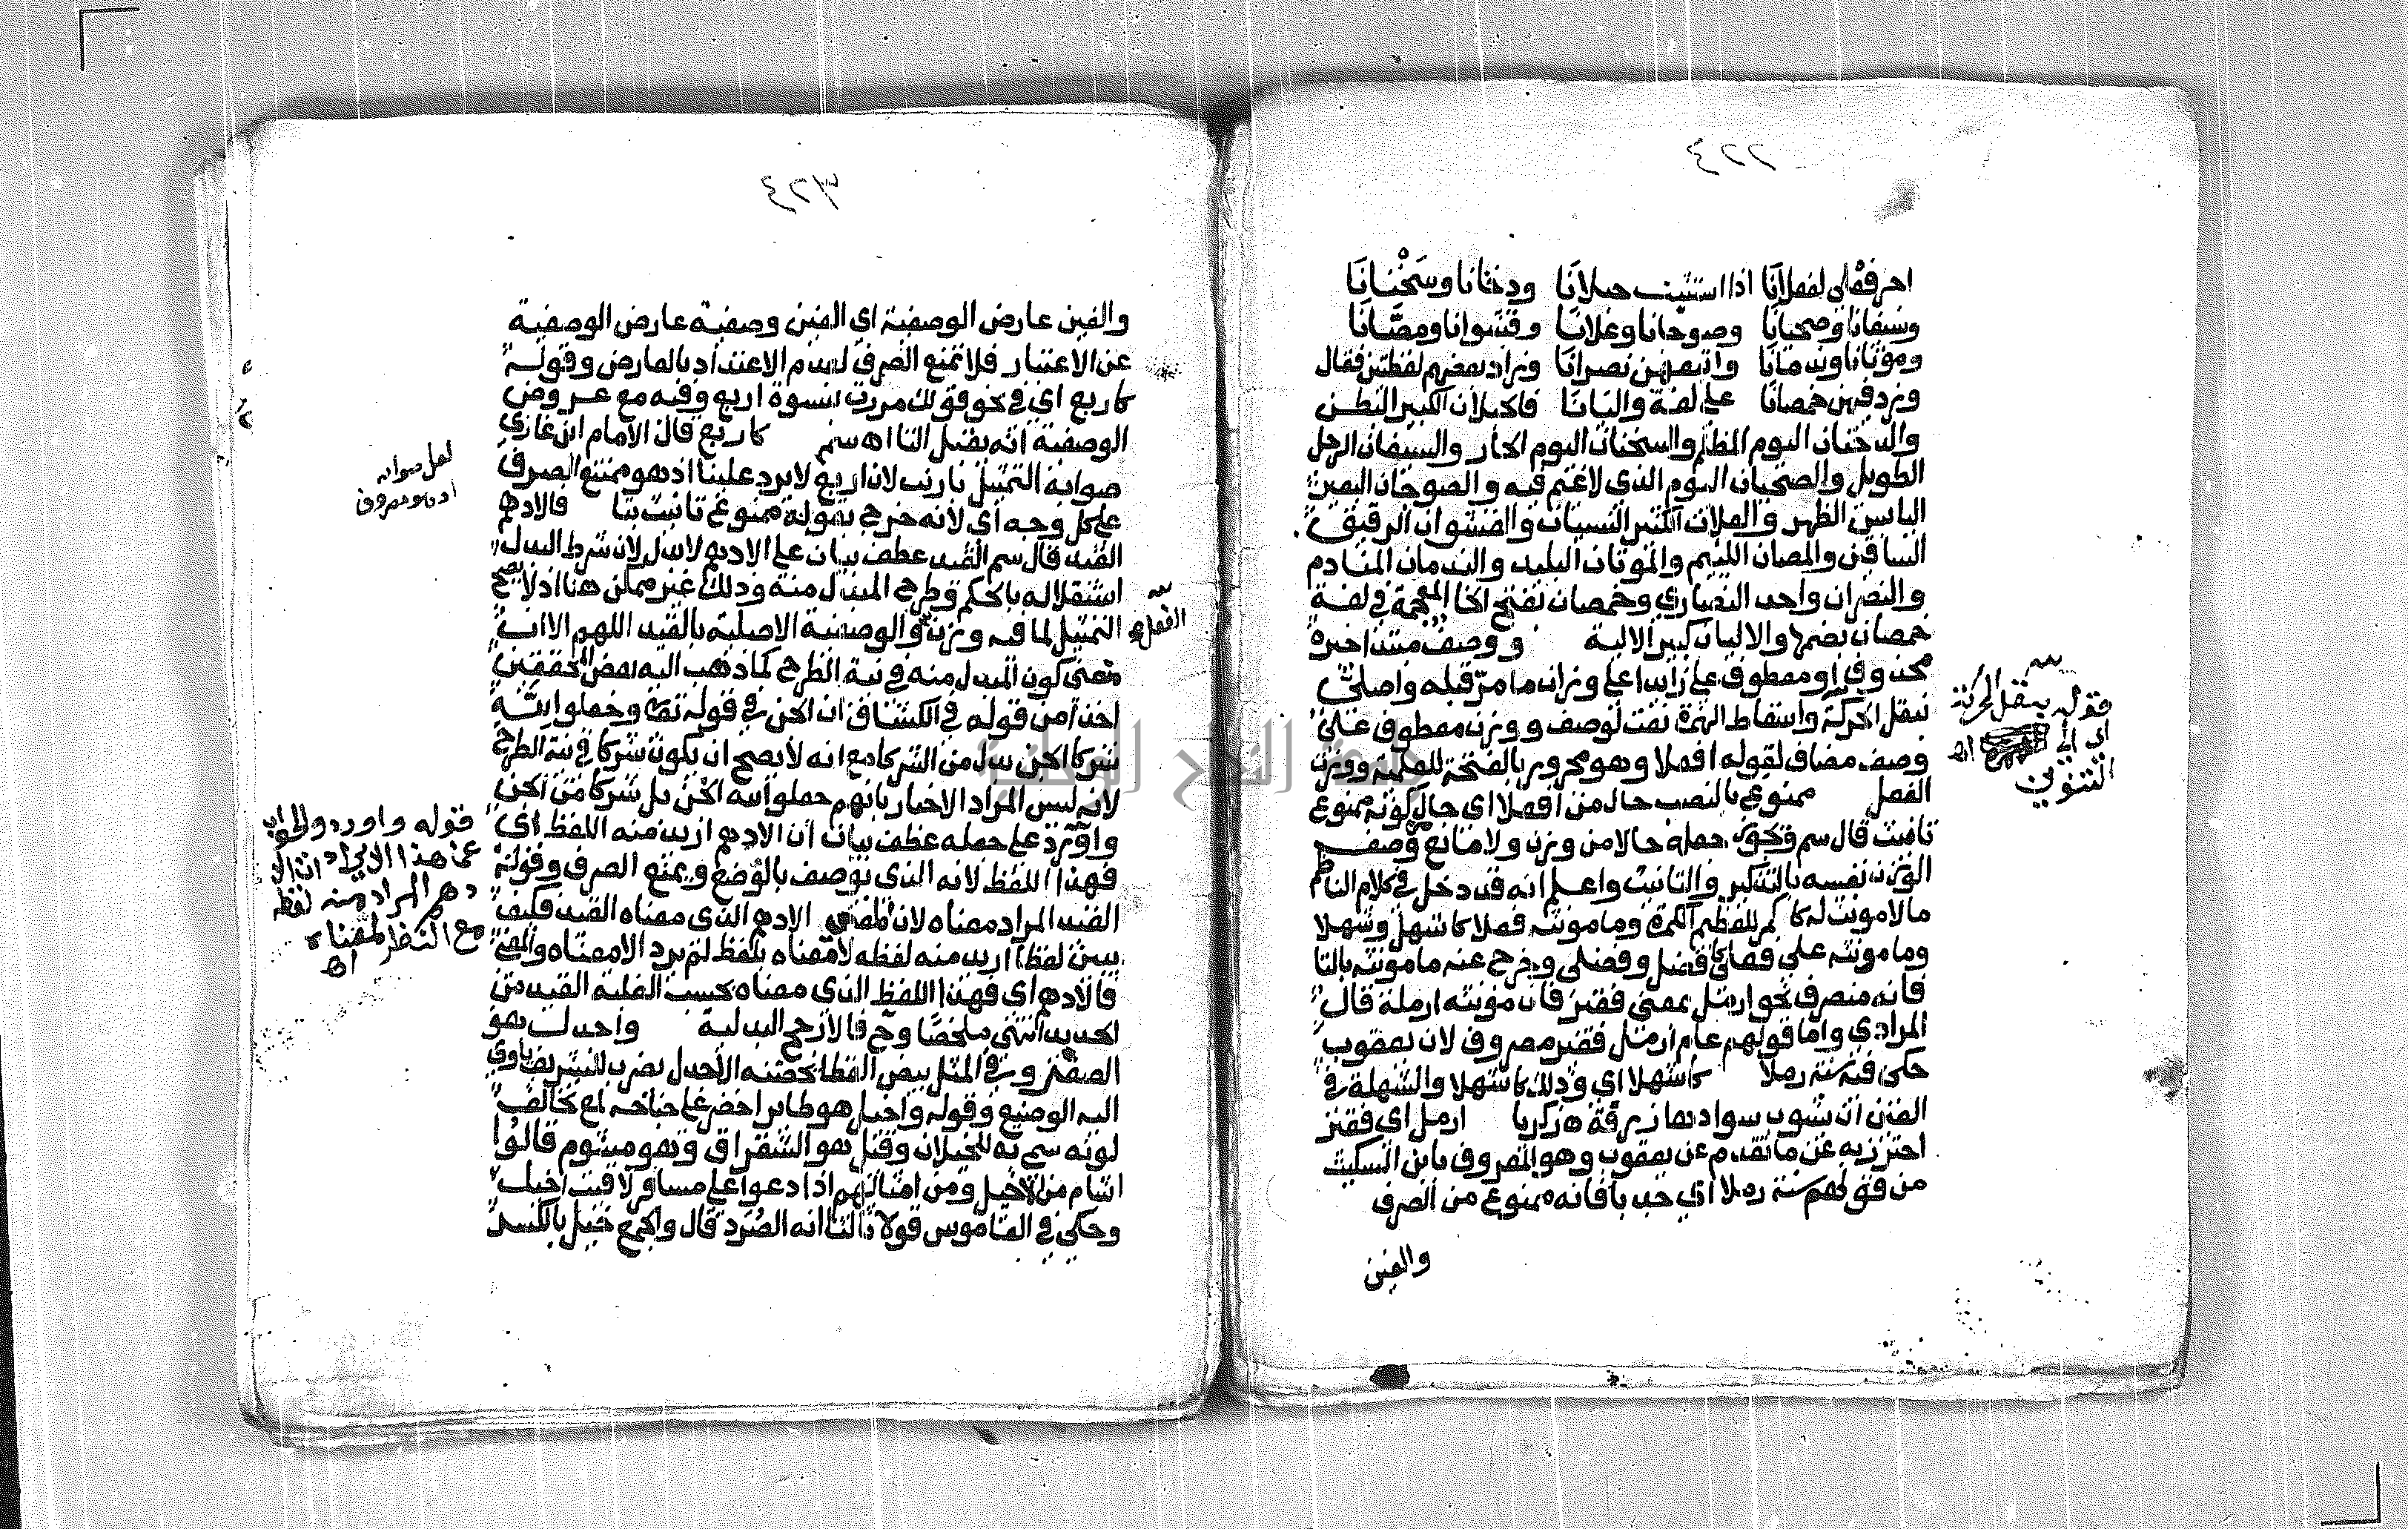 ٤٢٢
اجز فعلى لفعلانا اذا استثنيت حبلانا ودخنانا وسَخْنانَا
وسيفانا وصحيانا وصوجانا وعلانا وقشوانا ومصّانا
وموتانا وندمانا واتبعهن نصرانا وزاد بعضهم لفظتين فقال
وزد فيهن خمصانا على لغة واليانا فالحبلان الكبير البطن
والدخنان اليوم المظلم والسخنان اليوم الحار والسيفان الرجل
الطويل والصحيان اليوم الذي لا غيم فيه والصوجان البعير
اليابس الظهر والعلان الكثير النسيان والقشوان الرقيق
الساقين والمصان اللئيم والموتان البليد والندمان المنادم
والنصران واحد النصارى وخمصان بفتح الخا المعجمة في لغة
خمصان بضمها والاليان كبير الالية ووصف مبتدا خبره
محذوف او معطوف على زايدا على وزان ما مرّ قبله واصلي
بنقل الحركة واسقاط الهمزة نعت لوصف ووزن معطوف على
وصف مضاف لقوله افعلا وهو مجرور بالفتحة للعلمية ووزن
الفعل ممنوع بالنصب حال من افعلا اي حال كونه ممنوع
تانيث قال سم ويجوز جعله حالا من وزن ولا مانع وصف
الوزن نفسه بالتذكير والتانيث واعلم انه قد دخل في كلام الناظم
ما لا مونث له كا كمر للعظيم الكمرة وما مونثه فعلا كاشهل وشهلا
وما مونثه على فعلى كافضل وفضلى وخرج عنه ما مونثه بالتا
فانه منصرف نحو ارمل بمعنى فقير فان مونثه ارملة قال
المرادي واما قولهم عام ارمل فغير مصروف لان يعقوب
حكى فيه سنة رملا كاشهلا اي وذلك كاشهلا والشهلة في
العين ان يشوب سوادها زرقة ه زكريا ارمل اي فقير
احترز به عن ما تقدم عن يعقوب وهو المعروف بابن السكيت
من قولهم سنة رملا اي جدبا فانه ممنوع من الصرف
والغين
قوله بنقل الحركة
اي الى
التنوين اهـ
٤٢٣
والغين عارض الوصفية اي الغين وصفيته عارض الوصفية
عن الاعتبار فلا تمنع الصرف لعدم الاعتداد بالعارض وقوله
كاربع اي في نحو قولك مررت بنسوة اربع وفيه مع عروض
الوصفية انه يقبل التا اه سم كاربع قال الامام ابن غازي
صوابه التمثيل بارنب لان اربع لا يرد علينا اذ هو ممتنع الصرف
على كل وجه اي لانه خرج بقوله ممنوع تانيث بتا فالادهم
القيد قال سم القيد عطف بيان على الادهم لا بدل لان شرط البدل
استقلاله بالحكم وطرح المبدل منه وذلك غير ممكن هنا اذ لا يصح
التمثيل لما فيه وزن والوصفية الاصلية بالقيد اللهم الا ان
معنى كون المبدل منه في نية الطرح كما ذهب اليه بعض المحققين
اخذا من قوله في الكشاف ان الجن في قوله تعالى وجعلوا لله
شركا الجن بدل من الشركا مع انه لا يصح ان يكون شركا في نية الطرح
لانه ليس المراد الاخبار بانهم جعلوا لله الجن بل شركا من الجن
واورد على جعله عطف بيان ان الادهم اريد منه اللفظ اي
فهذا اللفظ لانه الذي يوصف بالوضع ويمنع الصرف وقوله
القيد المراد معناه لان الادهم الذي معناه القيد فكيف
يبين لفظ اريد منه لفظه لا معناه بلفظ لم يرد الا معناه والمعنى
فالادهم اي فهذا اللفظ الذي معناه بحسب الغلبة القيد من
الحديد انتهى ملخصا وح فالارجح البدلية واجدل هو
الصقر وفي المثل بيض القطا يحضنه الاجدل يضرب للشريف ياوي
اليه الوضيع وقوله واخيل هو طاير اخضر على جناحه لمع تخالف
لونه سمي به للخيلان وقيل هو الشقراق وهو مشئوم قالوا
اشام من الاخيل ومن امثالهم اذا دعوا على مسافر لاقيت اخيل
وحكى في القاموس قولا ثالثا انه الصُرَد قال والجمع خيل بالكسر
لعل صوابه
اذ هو مصروف
الفعل
قوله واورد والجواب
عن هذا الايراد ان الا
دهم المراد منه لفظه
مع النظر لمعناه
اهـ